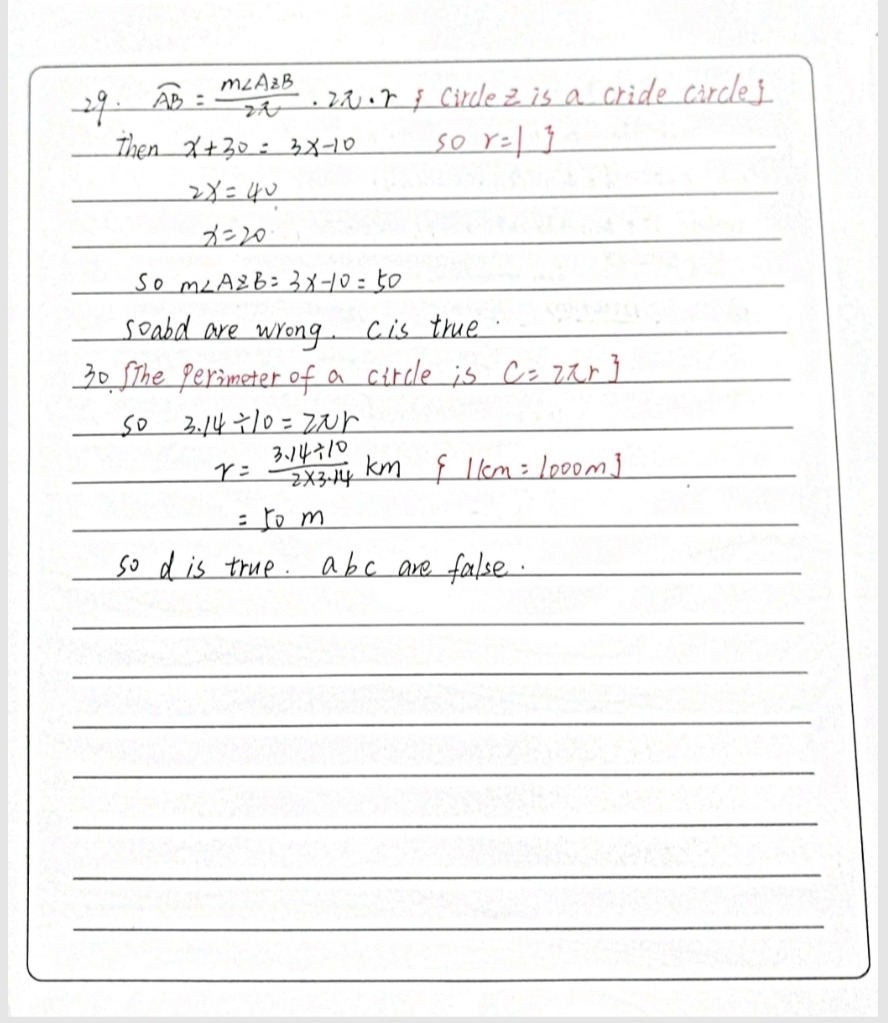 29. AB = m∠AZB / 2π · 2π · r { Circle z is a cride circle}
Then x+30 = 3x-10 so r=1 }
2x = 40
x=20
So m∠AZB = 3x-10 = 50
so abd are wrong. c is true.
30. {The Perimeter of a circle is C= 2πr }
so 3.14÷10 = 2πr
r = 3.14÷10 / 2×3.14 km { 1km = 1000m}
= 50 m
so d is true. abc are false.